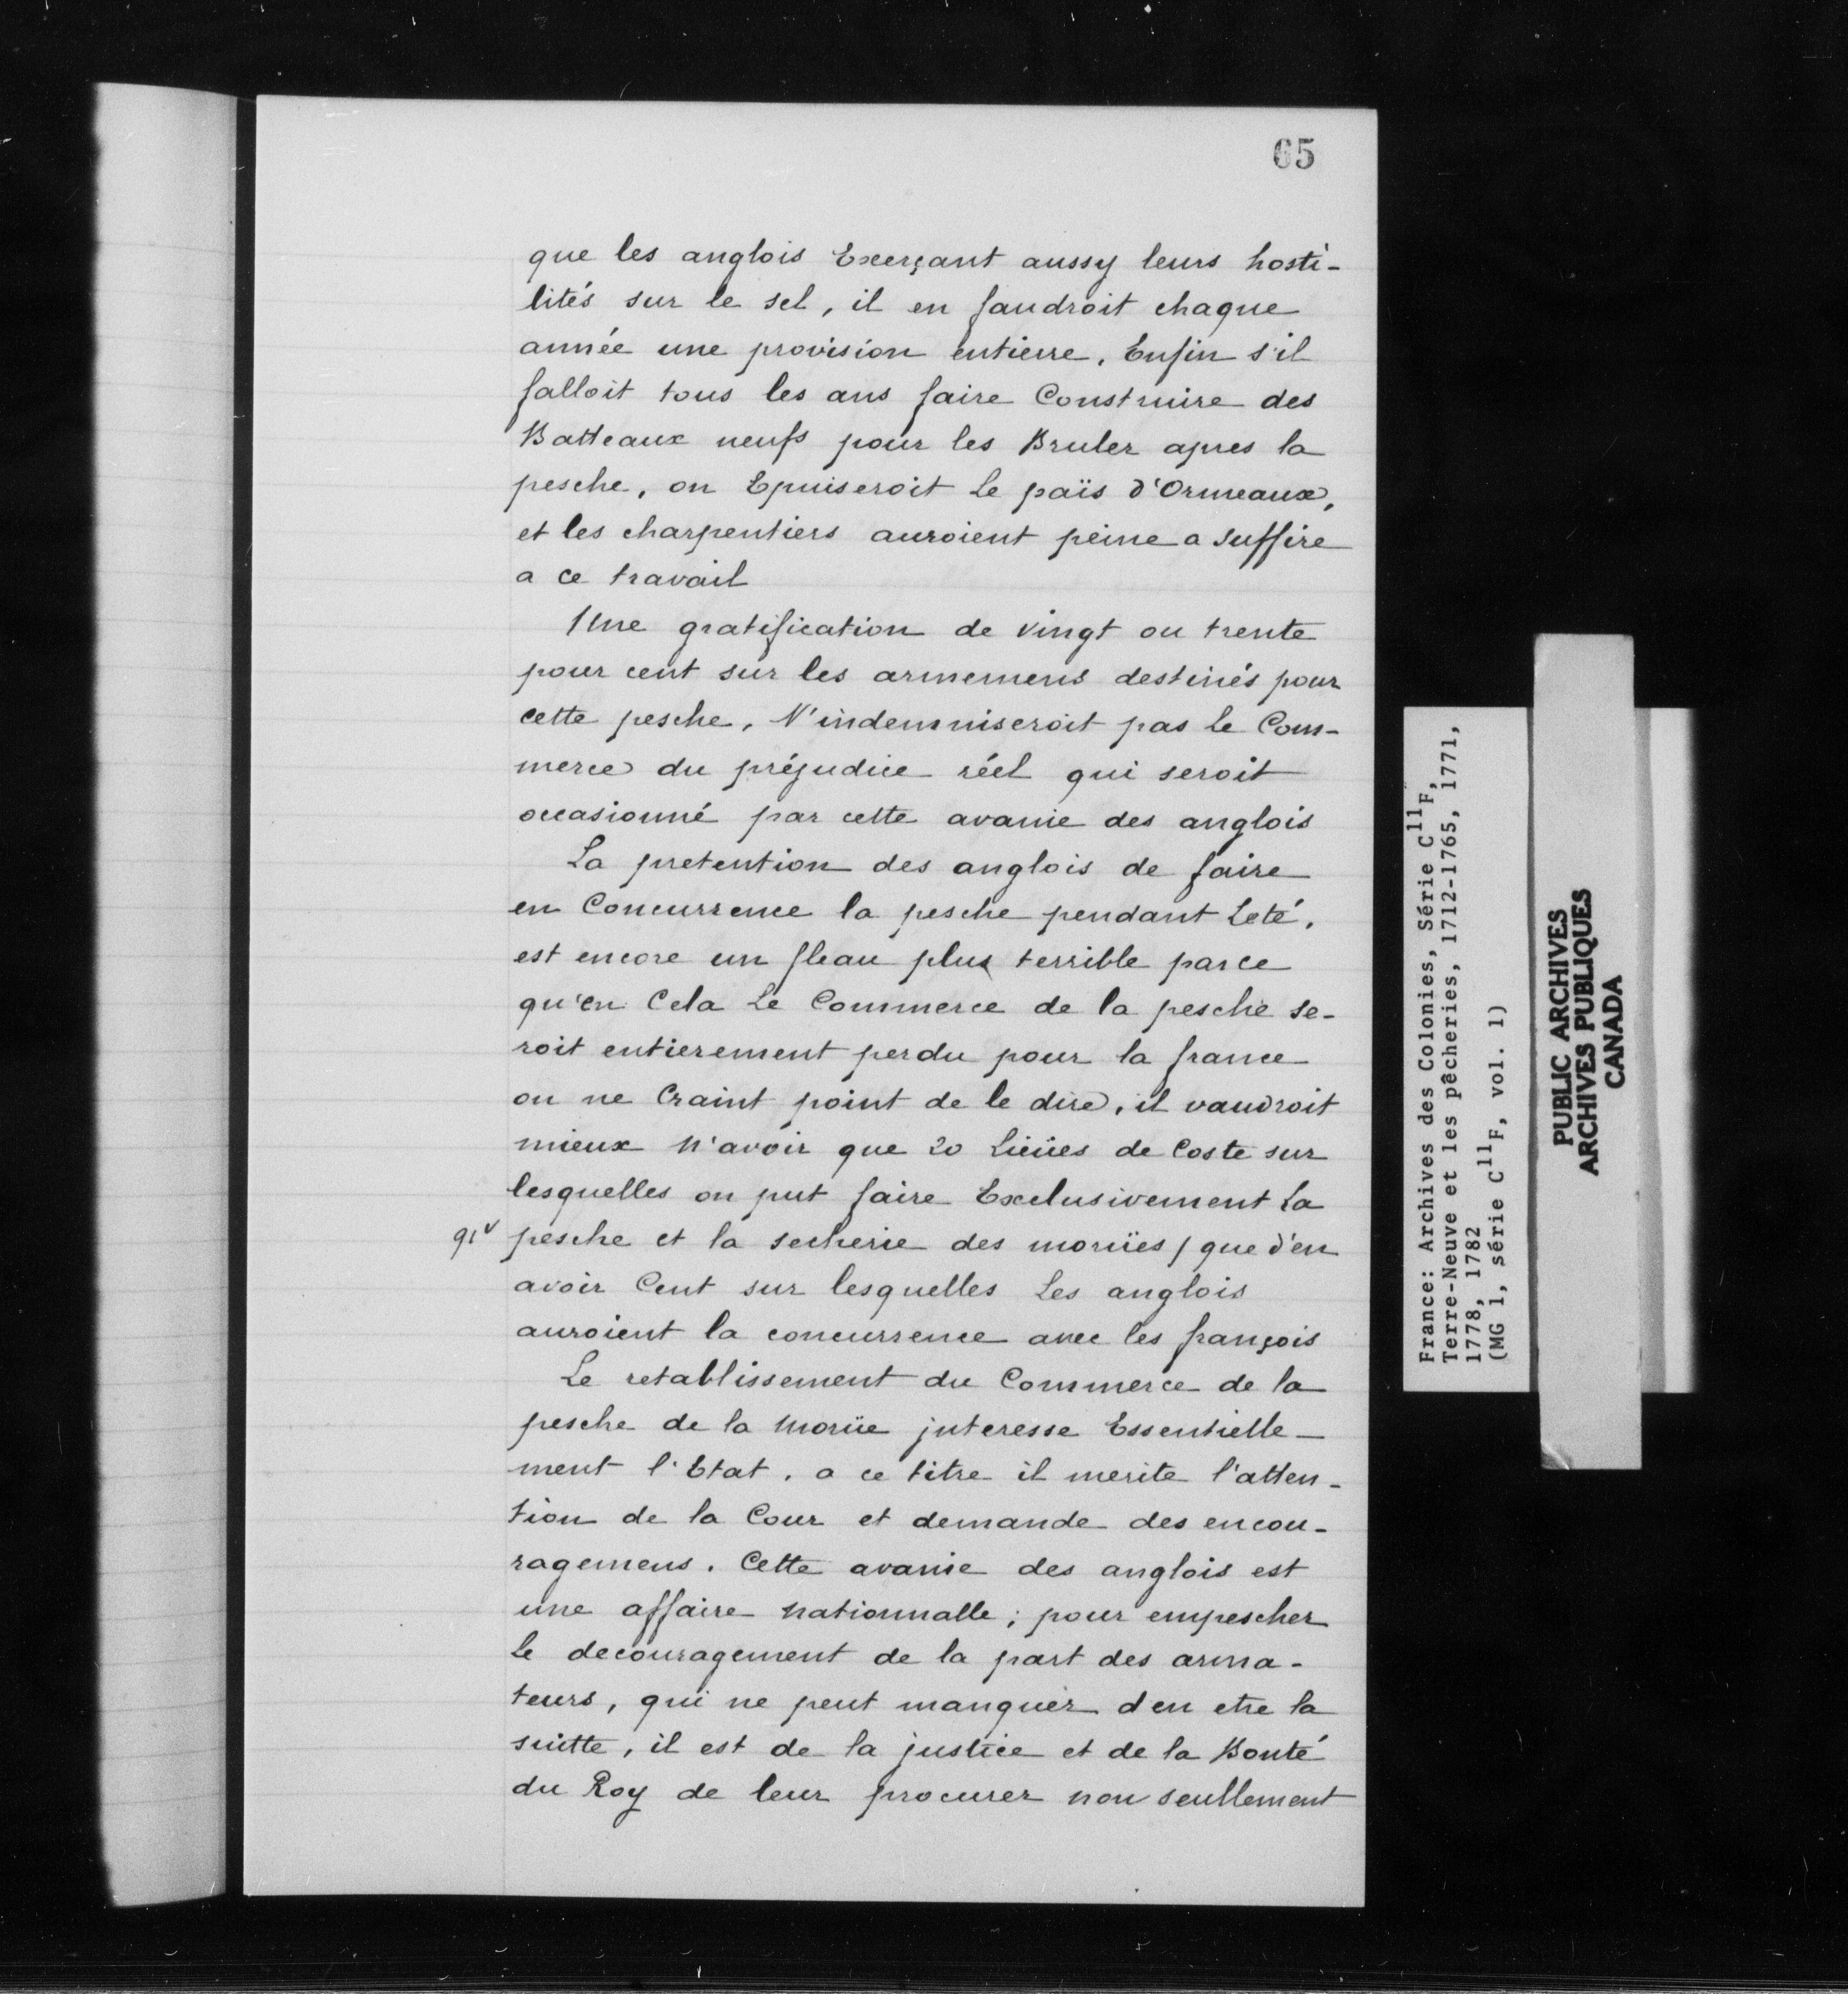 65
que les anglois Exerçant aussy leurs hosti-
lités sur le sel, il en faudroit chaque
année une provision entierre. Enfin s'il
falloit tous les ans faire Construire des
Batteaux neufs pour les Bruler apres la
pesche, on Epuiseroit Le païs d'Ormeaux,
et les charpentiers auroient peine a suffire
a ce travail
Une gratification de vingt ou trente
pour cent sur les armemens destinés pour
cette pesche, N'indemniseroit pas le Com-
merce du préjudice réel qui seroit
occasionné par cette avanie des anglois
La pretention des anglois de faire
en Concurrence la pesche pendant Leté,
est encore un fleau plus terrible parce
qu'en Cela Le Commerce de la pesche se-
roit entierement perdu pour la france
on ne Craint point de le dire, il vaudroit
mieux N'avoir que 20 Lieües de Coste sur
lesquelles on put faire Exclusivement La
91v pesche et la secherie des morües / que d'en
avoir Cent sur lesquelles Les anglois
auroient la concurrence avec les françois
Le retablissement du Commerce de la
pesche de la Morüe jnteresse Essentielle-
ment l'Etat. a ce titre il merite l'atten-
tion de la Cour et demande des encou-
ragemens. Cette avanie des anglois est
une affaire nationnalle; pour empescher
le decouragement de la part des arma-
teurs, qui ne peut manquer d'en etre la
suitte, il est de la justice et de la Bonté
du Roy de leur procurer non seullement
France: Archives des Colonies, Série C11F,
Terre-Neuve et les pêcheries, 1712-1765, 1771,
1778, 1782
(MG 1, série C11F, vol. 1)
PUBLIC ARCHIVES
ARCHIVES PUBLIQUES
CANADA